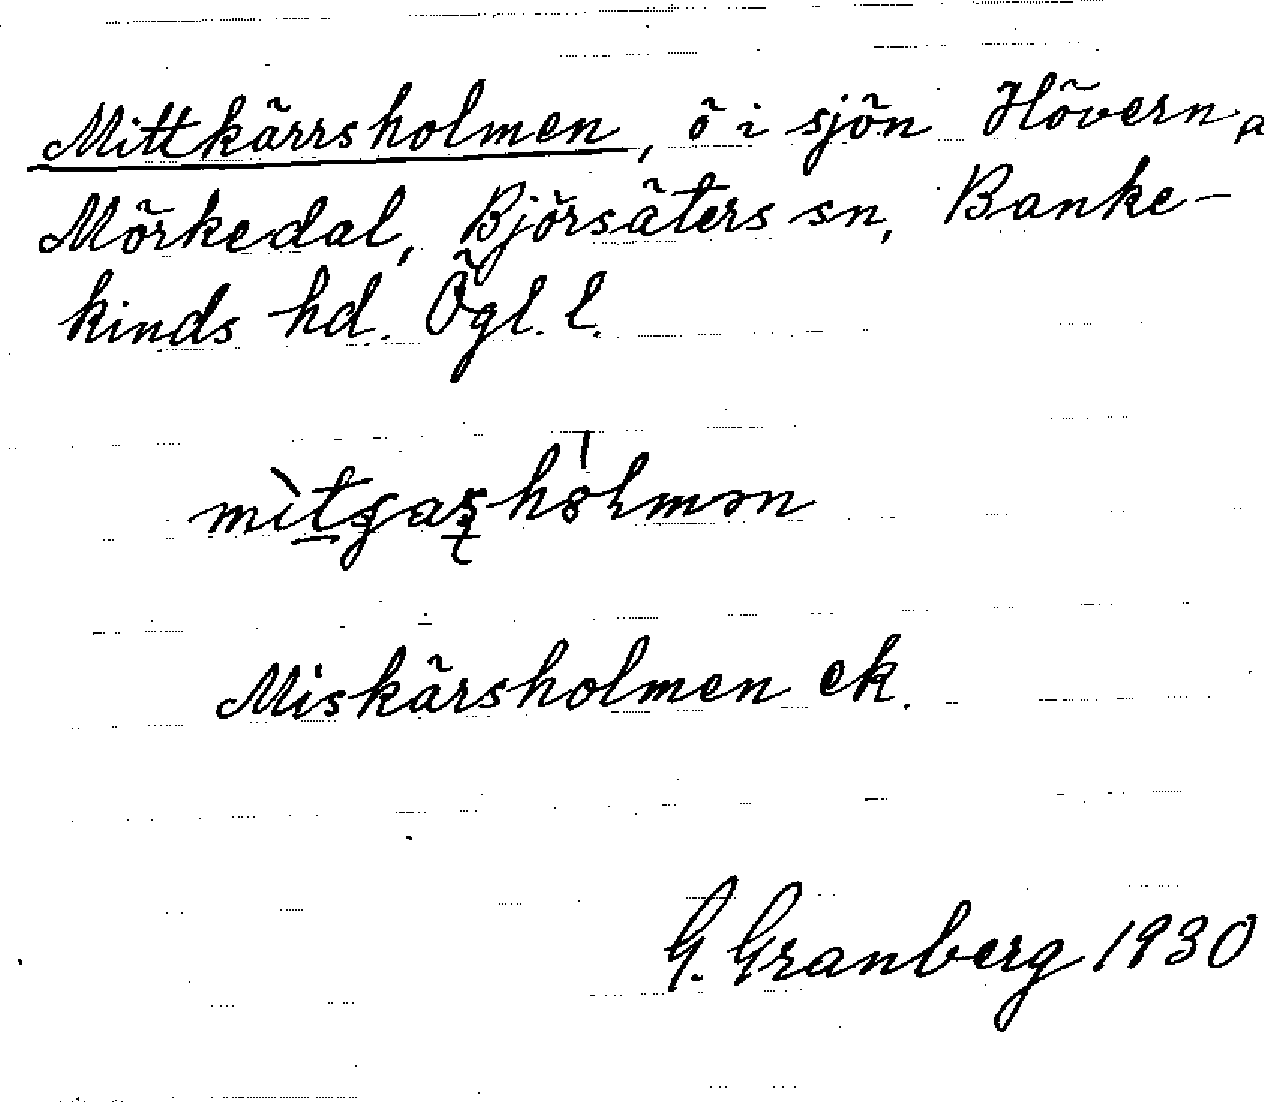 Mittkärrsholmen, ö i sjön Hövern,
Mörkedal, Björsäters sn, Banke-
kinds hd. Ögl. l.
Miskärsholmen ek.
G. Granberg 1930